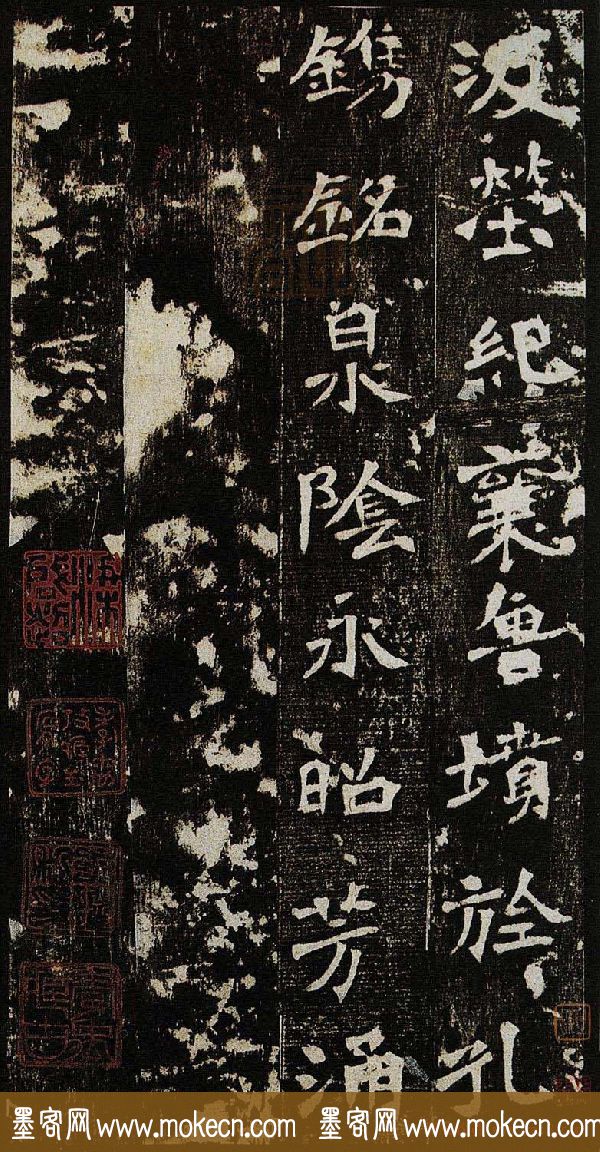 汲塋紀襄魯墳於孔
鐫銘泉陰永昭芳涌
墨客网 www.mokecn.com 墨客网 www.mokecn.com